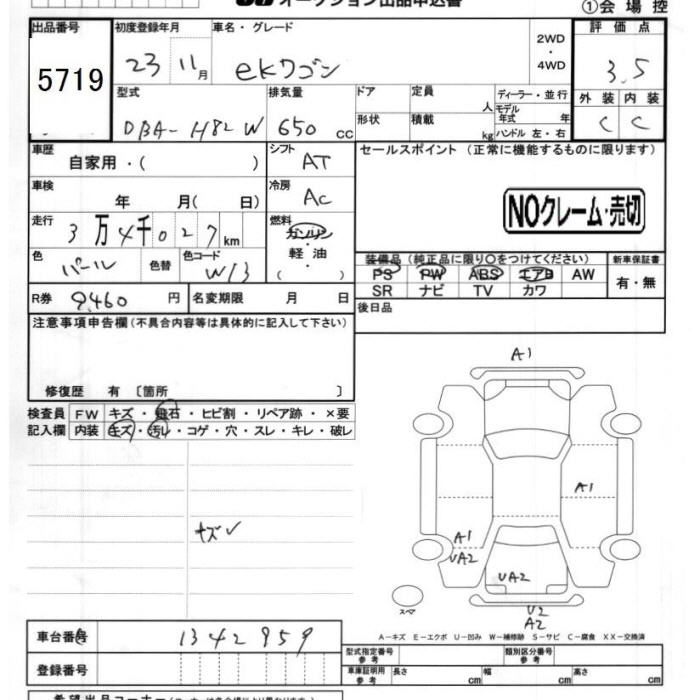 オークション出品申込書
①会 場 控
出品番号
5719
初度登録年月
23 11月
車名・グレード
eKワゴン
2WD
・
4WD
評 価 点
3.5
外 装 内 装
C C
型式
DBA-H82W
排気量
650 cc
ドア
形状
定員
人
積載
kg
ディーラー・並行
モデル年式 年
ハンドル 左・右
車歴
自家用・( )
シフト
AT
セールスポイント (正常に機能するものに限ります)
車検
年 月( 日)
冷房
AC
NOクレーム・売切
走行
3万4千027km
燃料
ガソリン
・
軽 油
( ・ )
色
パール
色替
色コード
W13
装備品 (純正品に限り○をつけてください)
新車保証書
PS PW ABS エアB AW
SR ナビ TV カワ
有・無
R券 9,460 円
名変期限 月 日
後日品
注意事項申告欄(不具合内容等は具体的に記入して下さい)
修復歴 有 〔箇所 〕
検査員 FW キズ・飛石・ヒビ割・リペア跡・×要
記入欄 内装 キズ・汚レ・コゲ・穴・スレ・キレ・破レ
キズ
A1
A1
A1
UA2
UA2
スペア
U2
A2
A-キズ E-エクボ U-凹み W-補修跡 S-サビ C-腐食 XX-交換済
車台番号
1342959
型式指定番号
参考
類別区分番号
参考
登録番号
車庫証明用
参考
長さ cm 幅 cm 高さ cm
希望出品コーナー